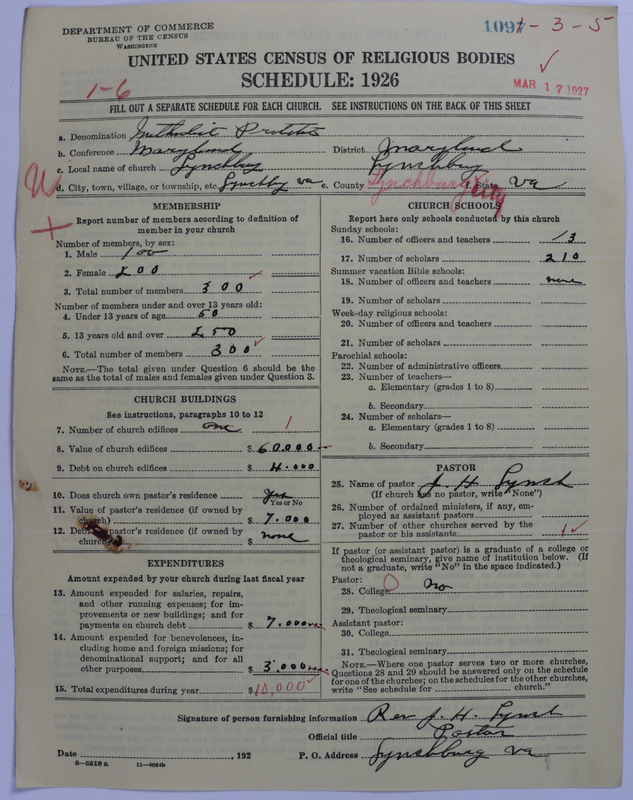 DEPARTMENT OF COMMERCE
BUREAU OF THE CENSUS
WASHINGTON
1-3-5
UNITED STATES CENSUS OF RELIGIOUS BODIES
SCHEDULE: 1926
MAR 17 1927
1-6
FILL OUT A SEPARATE SCHEDULE FOR EACH CHURCH. SEE INSTRUCTIONS ON THE BACK OF THIS SHEET
a. Denomination Methodist Protestant
b. Conference Maryland District Maryland
c. Local name of church Lynchburg Lynchburg
d. City, town, village, or township, etc Lynchburg Va e. County Lynchburg City f. State Va
MEMBERSHIP
Report number of members according to definition of member in your church
Number of members, by sex:
1. Male 100
2. Female 200
3. Total number of members 300
Number of members under and over 13 years old:
4. Under 13 years of age 50
5. 13 years old and over 250
6. Total number of members 300
NOTE.—The total given under Question 6 should be the same as the total of males and females given under Question 3.
CHURCH BUILDINGS
See instructions, paragraphs 10 to 12
7. Number of church edifices one 1
8. Value of church edifices $ 60.000
9. Debt on church edifices $ 4.000
10. Does church own pastor's residence Yes
Yes or No
11. Value of pastor's residence (if owned by church) $ 7.000
12. Debt on pastor's residence (if owned by church) $ none
EXPENDITURES
Amount expended by your church during last fiscal year
13. Amount expended for salaries, repairs, and other running expenses; for improvements or new buildings; and for payments on church debt $ 7.000
14. Amount expended for benevolences, including home and foreign missions; for denominational support; and for all other purposes $ 3.000
15. Total expenditures during year $ 10,000
CHURCH SCHOOLS
Report here only schools conducted by this church
Sunday schools:
16. Number of officers and teachers 13
17. Number of scholars 210
Summer vacation Bible schools:
18. Number of officers and teachers none
19. Number of scholars
Week-day religious schools:
20. Number of officers and teachers
21. Number of scholars
Parochial schools:
22. Number of administrative officers
23. Number of teachers—
a. Elementary (grades 1 to 8)
b. Secondary
24. Number of scholars—
a. Elementary (grades 1 to 8)
b. Secondary
PASTOR
25. Name of pastor J. H. Lynch
(If church has no pastor, write "None")
26. Number of ordained ministers, if any, employed as assistant pastors
27. Number of other churches served by the pastor or his assistants 1
If pastor (or assistant pastor) is a graduate of a college or theological seminary, give name of institution below. (If not a graduate, write "No" in the space indicated.)
Pastor:
28. College 0 No
29. Theological seminary
Assistant pastor:
30. College
31. Theological seminary
NOTE.—Where one pastor serves two or more churches, Questions 28 and 29 should be answered only on the schedule for one of the churches; on the schedules for the other churches, write "See schedule for church."
Signature of person furnishing information Rev J. H. Lynch
Official title Pastor
Date , 192 P. O. Address Lynchburg Va
8—5518 a